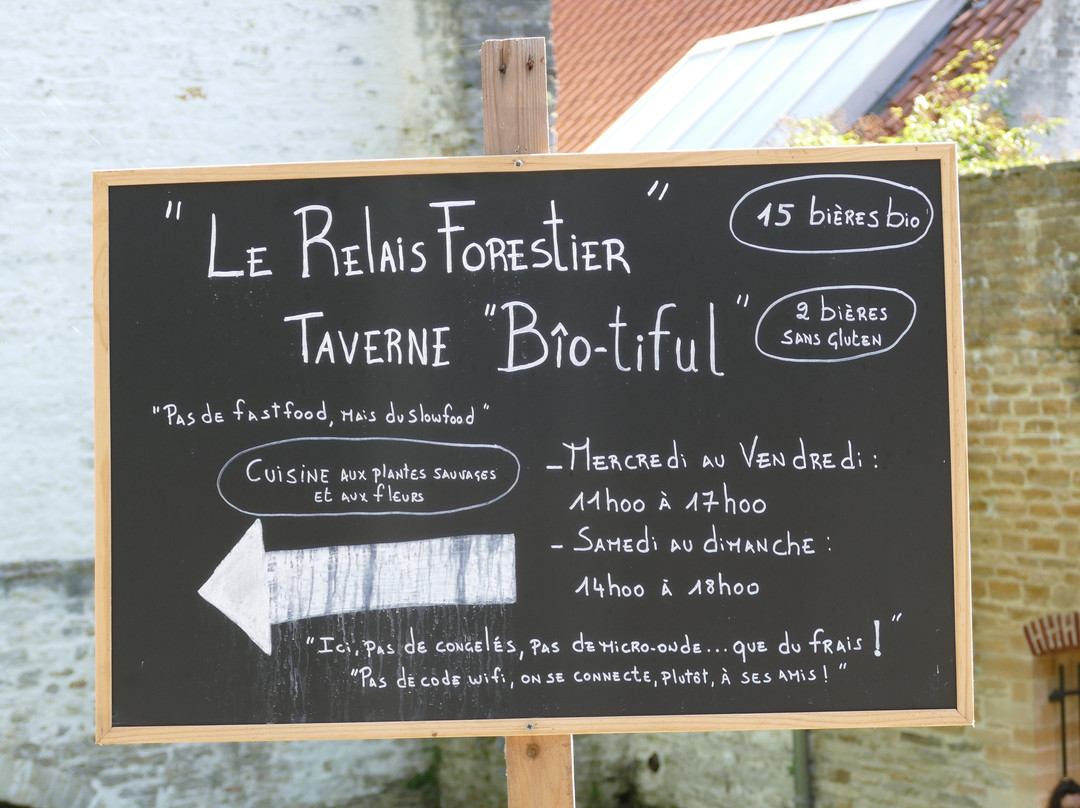 " Le Relais Forestier "
15 bières bio
Taverne "Bîo-tiful"
2 bières
sans gluten
"Pas de fastfood, mais du slowfood"
Cuisine aux plantes sauvages
et aux fleurs
- Mercredi au Vendredi :
11h00 à 17h00
- Samedi au dimanche :
14h00 à 18h00
"Ici, pas de congelés, pas de micro-onde... que du frais ! "
"Pas de code wifi, on se connecte, plutôt, à ses amis ! "